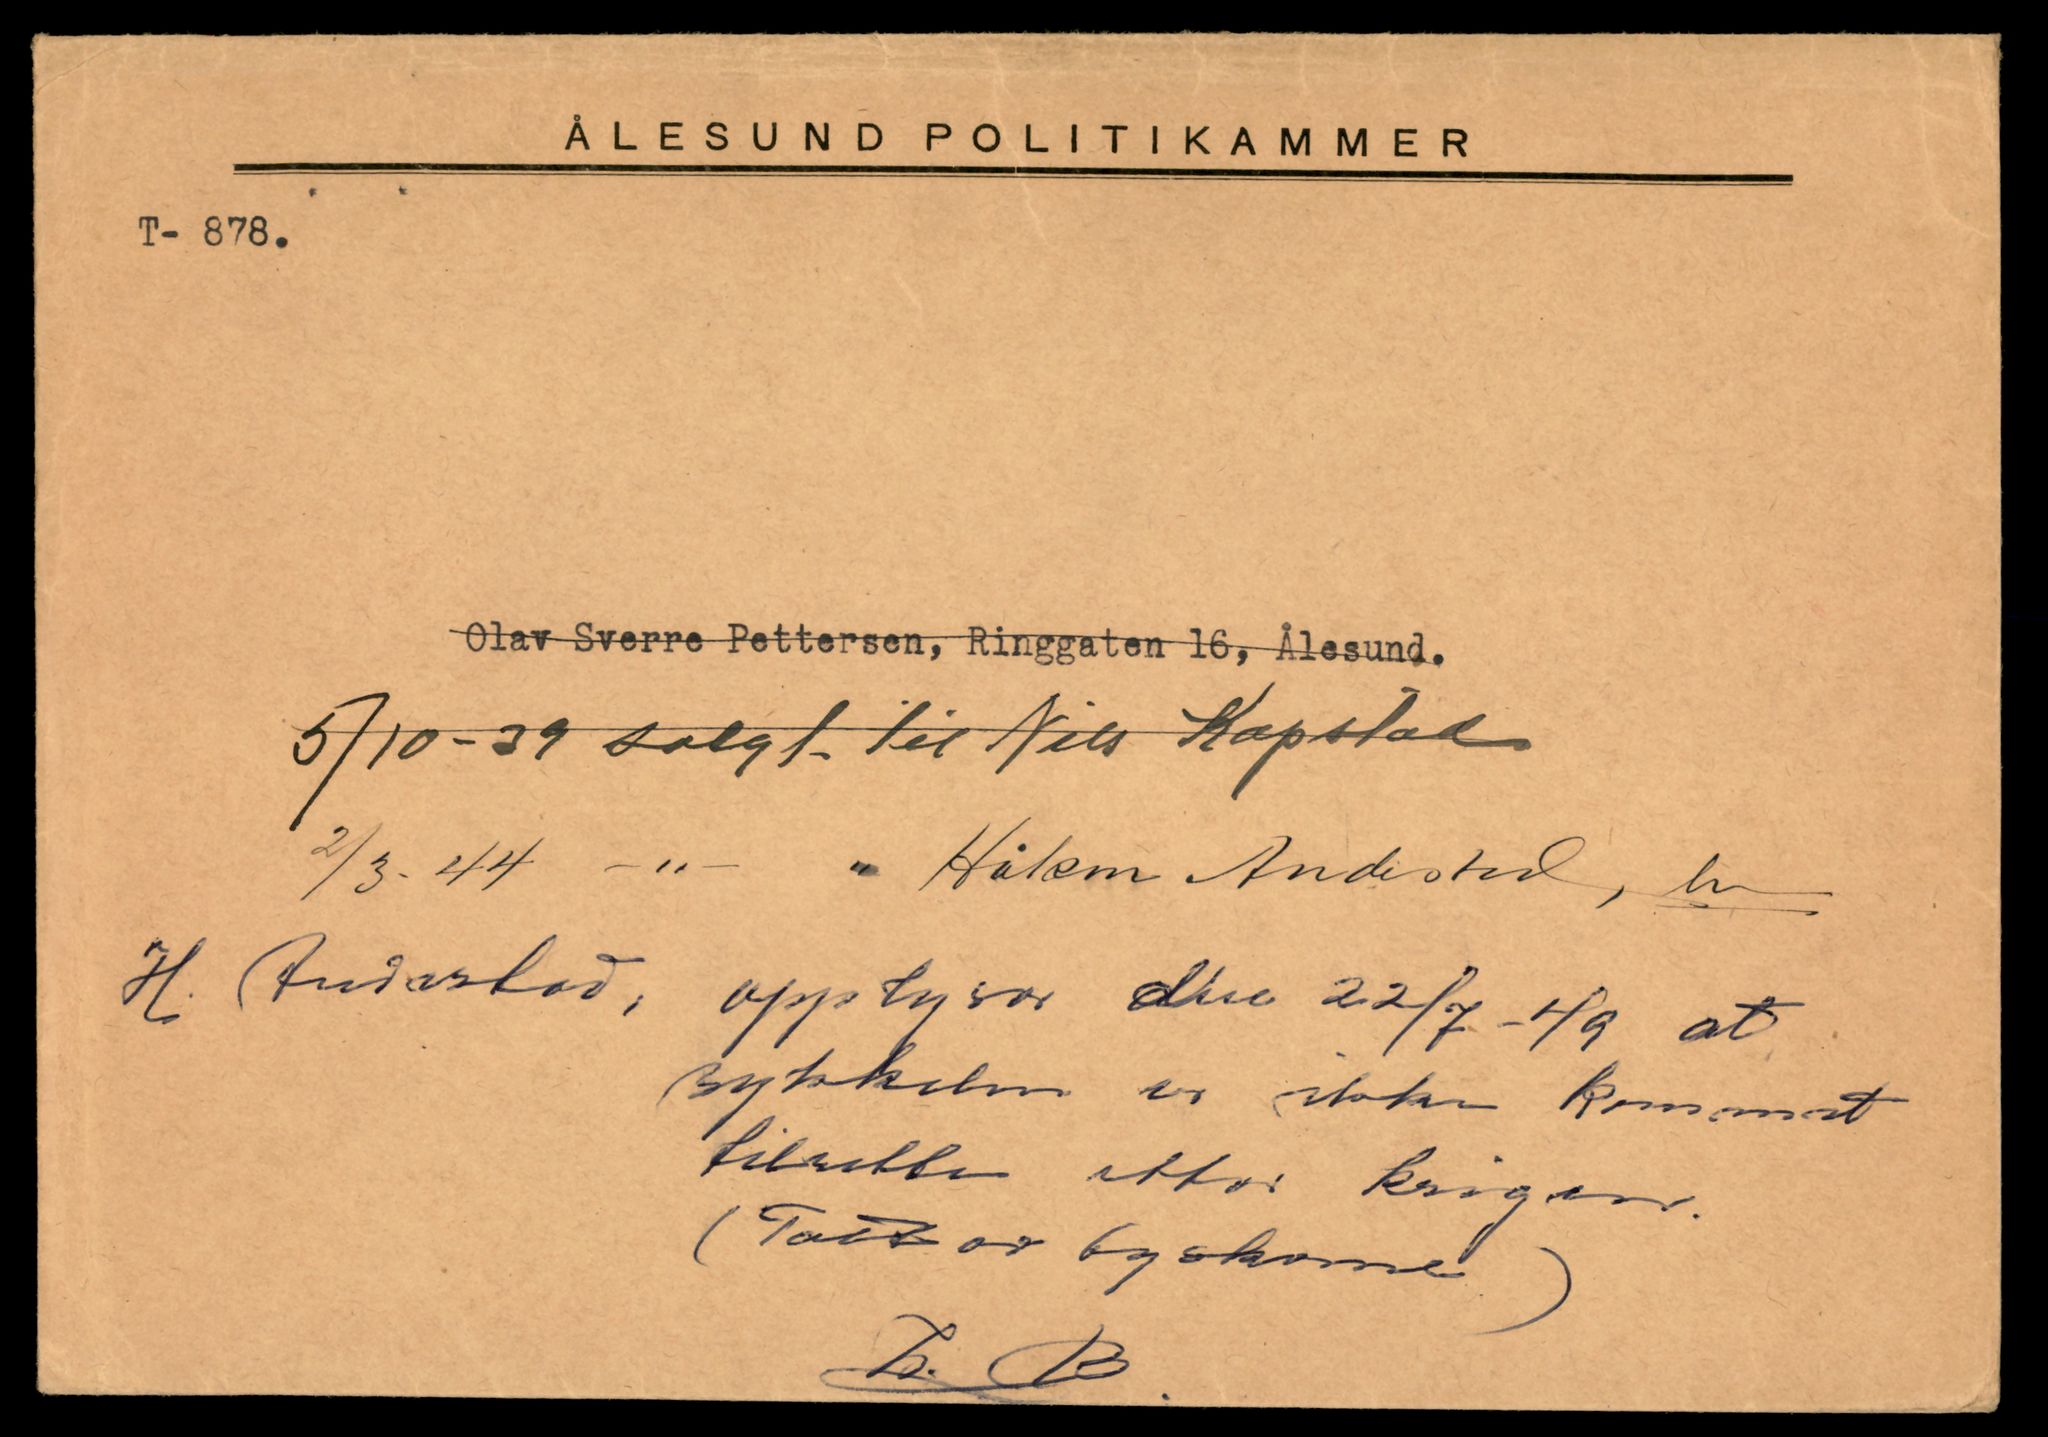 ÅLESUND POLITIKAMMER
T- 878.
Olav Sverre Pettersen, Ringgaten 16, Ålesund.
5/10-39 solgt til Nils Kapstad
2/3-44 -"- " Håkon Andestad, her
H. Anderstad, opplyser den 22/7-49 at
sykkelen er ikke kommet
tilrette etter krigen.
(Tatt av tyskerne)
B.